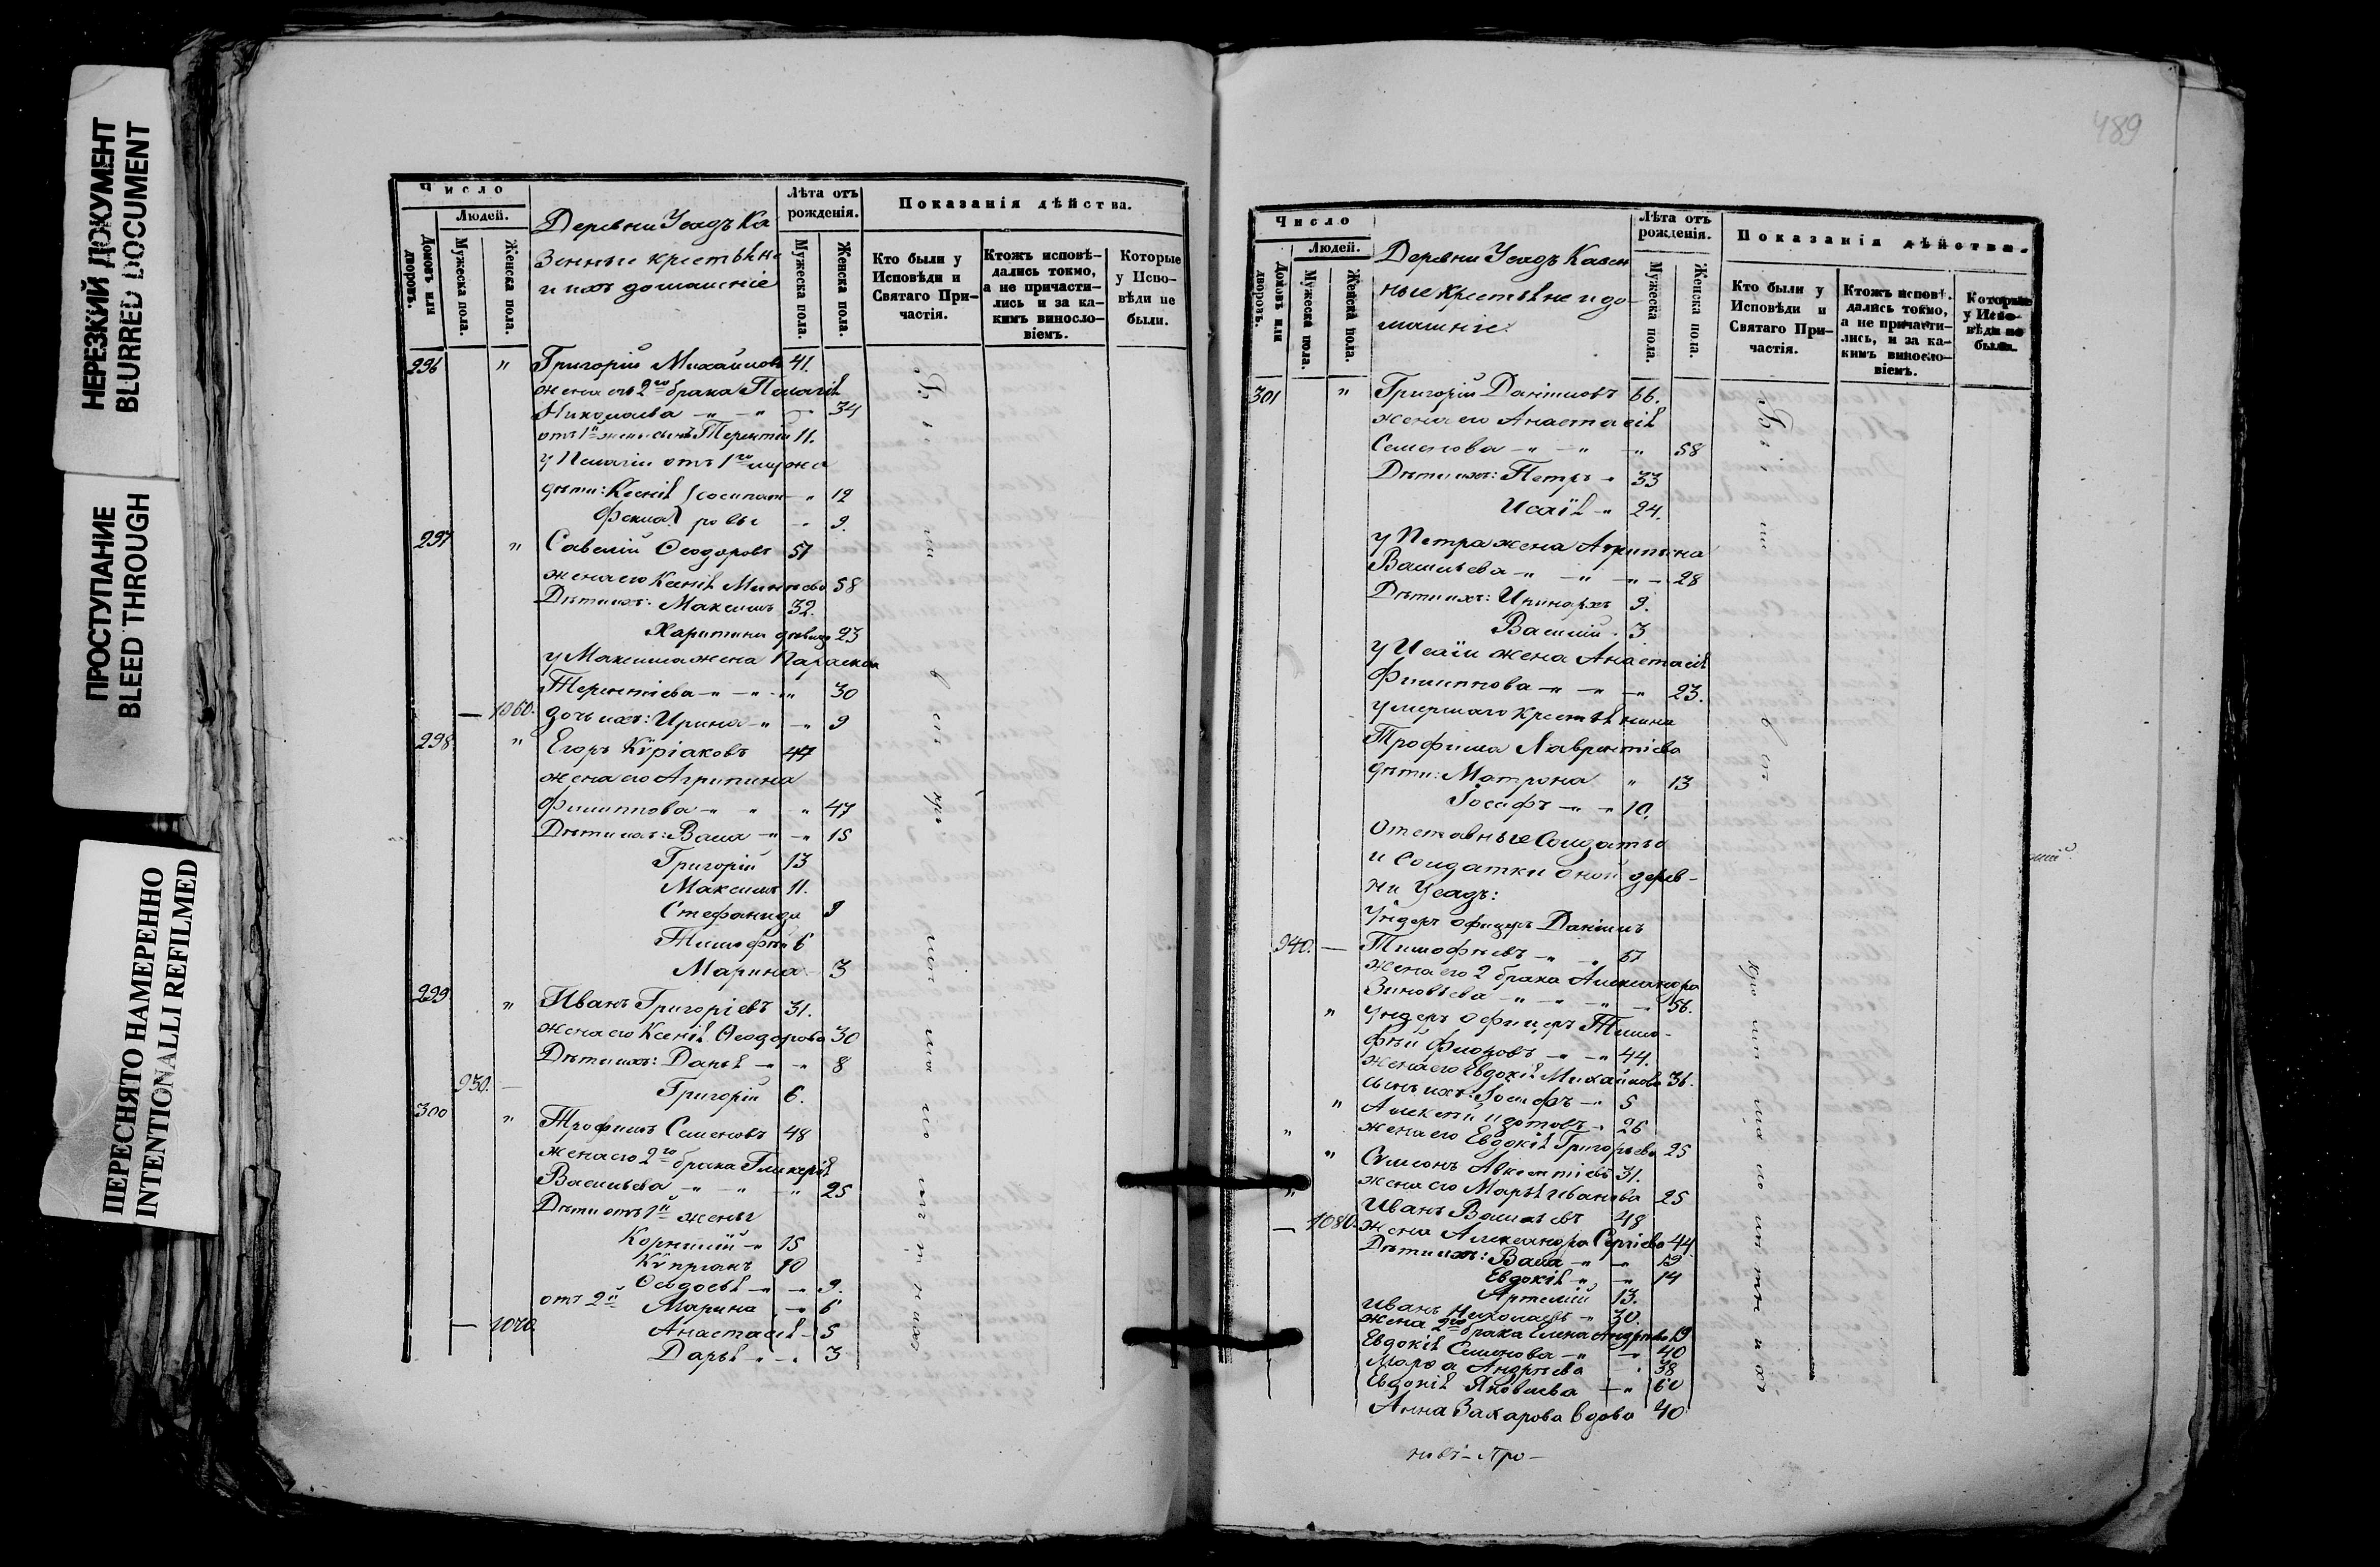 НЕРЕЗКИЙ ДОКУМЕНТ
BLURRED DOCUMENT
ПРОСТУПАНИЕ
BLEED THROUGH
ПЕРЕСНЯТО НАМЕРЕННО
INTENTIONALLI REFILMED
Число
Людей.
Домовъ или дворовъ.
Мужеска пола.
Женска пола.
Деревни Усадъ Ка
зенные крестьяне
и ихъ домашніе
Лѣта отъ рожденія.
Мужеска пола.
Женска пола.
Показанія дѣйства.
Кто были у Исповѣди и Святаго Причастія.
Ктожъ исповѣ-
дались токмо,
а не причасти-
лись и за ка-
кимъ винослo-
віемъ.
Которые
у Испо-
вѣди не
были.
296 " Григорій Михайловъ 41.
жена его 2го брака Пелагія
Николаева - " - " - 34
отъ 1й жены сынъ Терентій 11.
у Пелагіи отъ 1го мужа
дѣти: Ксенія 12
Фекла 9.
297 " Савелій Ѳеодоровъ 57
жена его Ксенія 58
Дѣти ихъ: Максимъ 32.
Харитина девица 23
у Максима жена Параскева
Терентіева - " - " - " 30
— 1060. дочь ихъ: Ирина - " - " 9
298. " Егоръ Кѵріаковъ 47
жена его Агрипина
Филиппова - " " " 47
Дѣти ихъ: Васса - " - " 15
Григорій 13
Максимъ 11.
Стефанида 9
Тимофѣй 6
Марина 3
299. " Иванъ Григоріевъ 31.
жена его Ксенія Ѳеодорова 30
Дѣти ихъ: Дарья - " - " 8
930. — Григорій 6.
300 " Трофимъ Семеновъ 48
жена его 2го брака Гликерія
Васильева - " - " - " 25
Дѣти отъ 1й жены
Корнилій - " 15
Кѵпріанъ 10
Ѳеодосья - " - " 9.
отъ 2й Марина - " 6
— 1070. Анастасія - 5
Дарья - " - " 3
489
Число
Людей.
Домовъ или дворовъ.
Мужеска пола.
Женска пола.
Деревни Усадъ Казен
ные крестьяне и до-
машніе
Лѣта отъ рожденія.
Мужеска пола.
Женска пола.
Показанія дѣйства.
Кто были у
Исповѣди и
Святаго При-
частія.
Ктожъ исповѣ-
дались токмо,
а не причасти-
лись, и за ка-
кимъ винослo-
віемъ.
Которые
у Испо-
вѣди не
были.
301 " Григорій Даниловъ 66.
жена его Анастасія
Семенова - " - " - " 58
Дѣти ихъ: Петръ - " 33
Исаія - " 24.
у Петра жена Агрипина
Васильева - " - " - " - 28
Дѣти ихъ: Иринархъ 9.
Василій - 3
у Исаіи жена Анастасія
Филиппова - " - " - " 23.
умершаго крестьянина
Трофима Лаврентіева
дѣти: Матрона " 13
Іосифъ - " - " 10.
Отставные Солдаты
и Солдатки оной дерев-
ни Усадъ:
Ундеръ офицеръ Даніилъ
940. — Тимофѣевъ - " - " 57
жена его 2 брака Александра
Зиновьева - " - " - " - 56.
" Ундеръ Офицеръ Тимо-
фѣй - " - " 44.
жена его Евдокія Михайлова 36.
сынъ ихъ: Іосифъ - " 5
" Алексѣй Изотовъ - " 26
" жена его Евдокія Григорьева 25
" Сѵмеонъ Авксентіевъ 31.
" жена его Марья Иванова 25
Иванъ Васильевъ 48
— 1080. жена Александра Сергіева 44
Дѣти ихъ: Васса - " - " 19
Евдокія - " - " 14
Артемій 13.
Иванъ Николаевъ - " 30.
жена 2го брака Елена Андреева 19
Евдокія Семенова - " - " 40
Марѳа Андреева - " 38
Евдокія Яковлева - " 60
Анна Захарова вдова 40